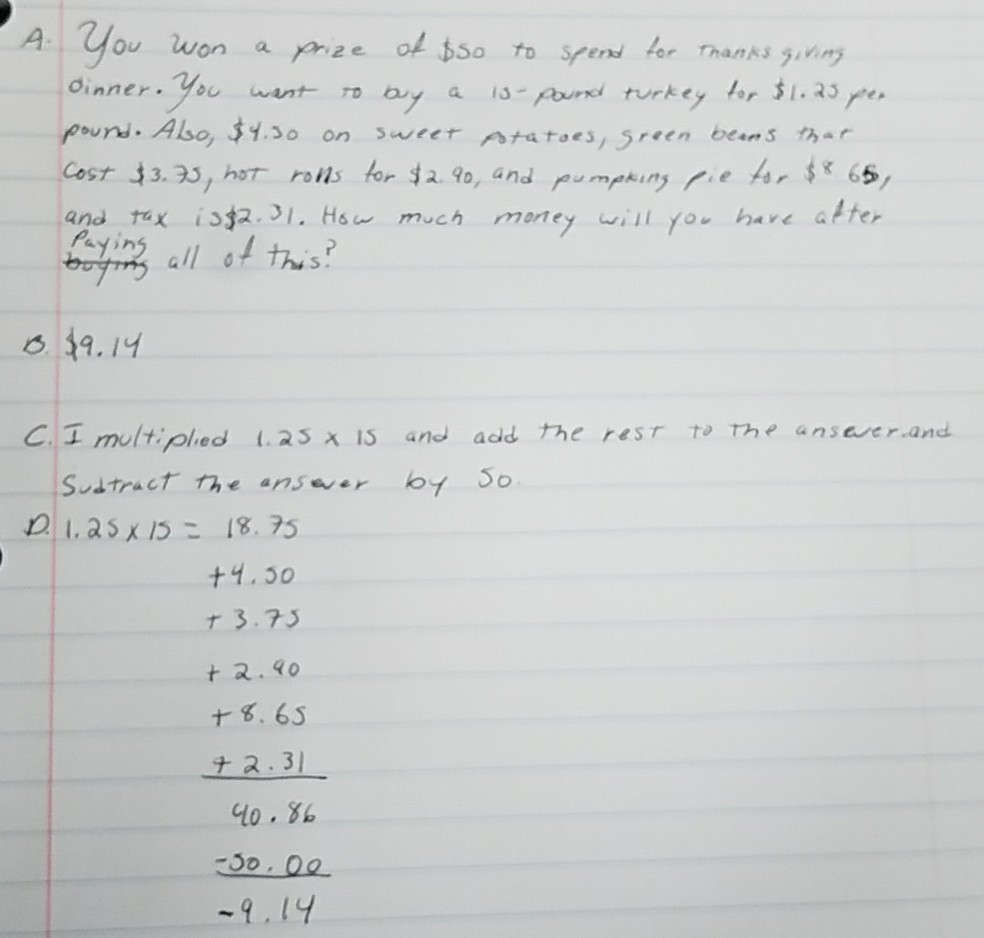 A. You won a prize of $50 to spend for Thanks giving
Dinner. You want to buy a 15-pound turkey for $1.25 per
pound. Also, $4.50 on sweet potatoes, green beans that
Cost $3.75, hot rolls for $2.90, and pumpking pie for $8 65,
and tax is $2.31. How much money will you have after
Paying
buying all of this?
B. $9.14
C. I multiplied 1.25 x 15 and add the rest to the ansewer.and
Subtract the ansewer by 50.
D. 1.25 x 15 = 18.75
+4.50
+ 3.75
+ 2.90
+ 8.65
+ 2.31
40.86
-50.00
-9.14